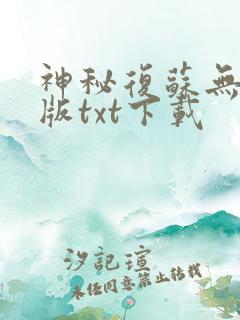 神秘復蘇無
版txt下載
汐記瑄
未任同意禁止轉載